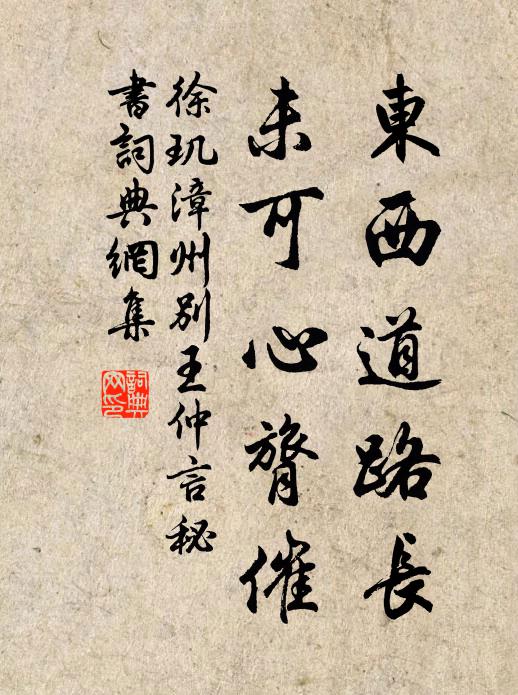 東西道路長
未可心膂催
徐玑漳州别王仲言秘
書詞典網集
詞典網印